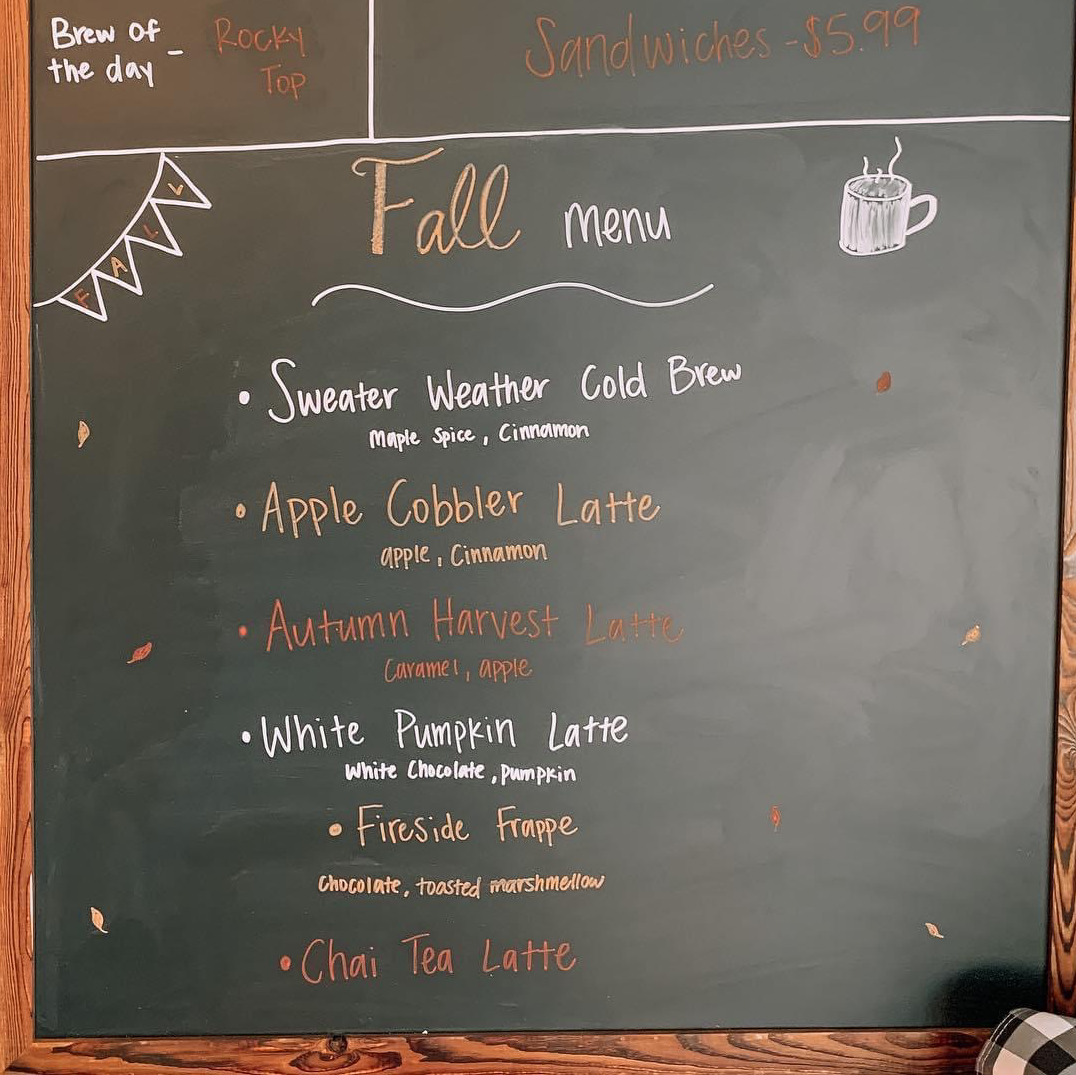 Brew of
the day - Rocky
Top
Sandwiches - $5.99
FALL
Fall menu
• Sweater Weather Cold Brew
Maple Spice, Cinnamon
• Apple Cobbler Latte
apple, Cinnamon
• Autumn Harvest Latte
Caramel, apple
• White Pumpkin Latte
White Chocolate, pumpkin
• Fireside Frappe
Chocolate, toasted marshmellow
• Chai Tea Latte